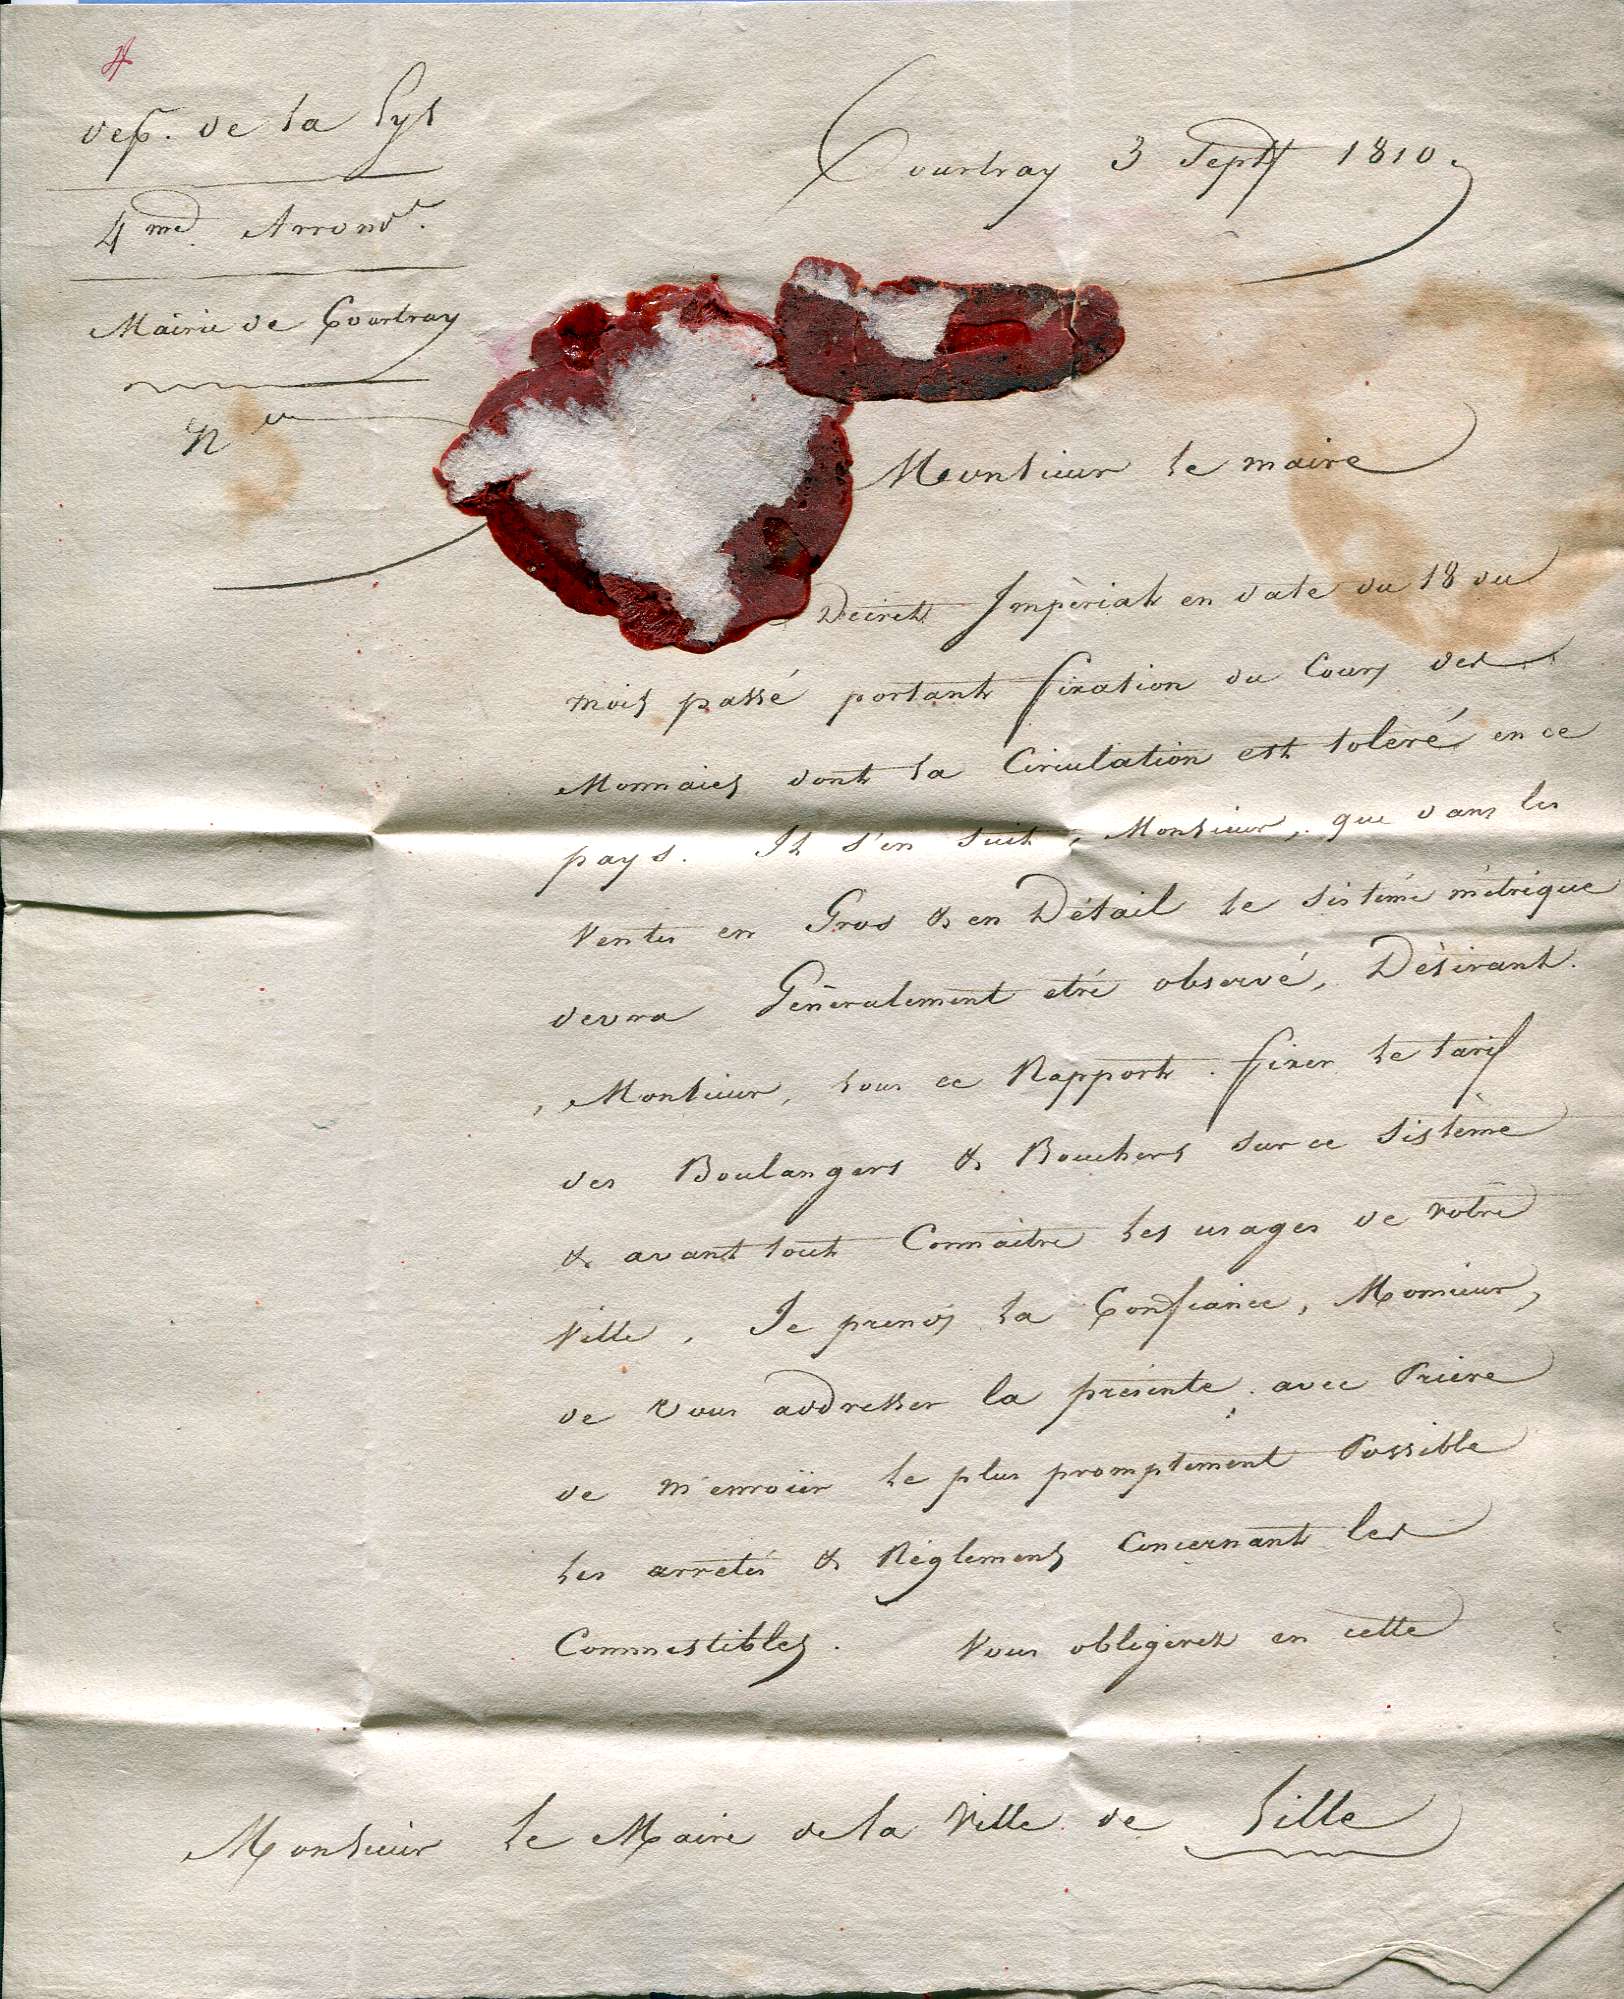 Dep. de la Lys
4me. Arrondt.
Mairie de Courtray
N
Courtray 3 Sept 1810.
Monsieur le maire
Decret Impérial en date du 18 du
mois passé portant fixation du Cours des
Monnaies dont la Circulation est toleré en ce
pays. Il s'en suit, Monsieur, que dans les
Ventes en Gros & en Détail le sistéme métrique
devra Géneralement etré observé, Désirant.
, Monsieur, sous ce Rapport. fixer le tarif
des Boulangers & Bouchers sur ce sistème
& avant tout Connaitre les usages de votre
Ville. Je prends la Confiance, Monsieur,
de vous addresser la présente. avec Prière
de m'envoïer le plus promptement Possible
les arretés & Réglemens Concernant les
Commestibles. Vous obligerez en cette
Monsieur le Maire de la Ville de Lille